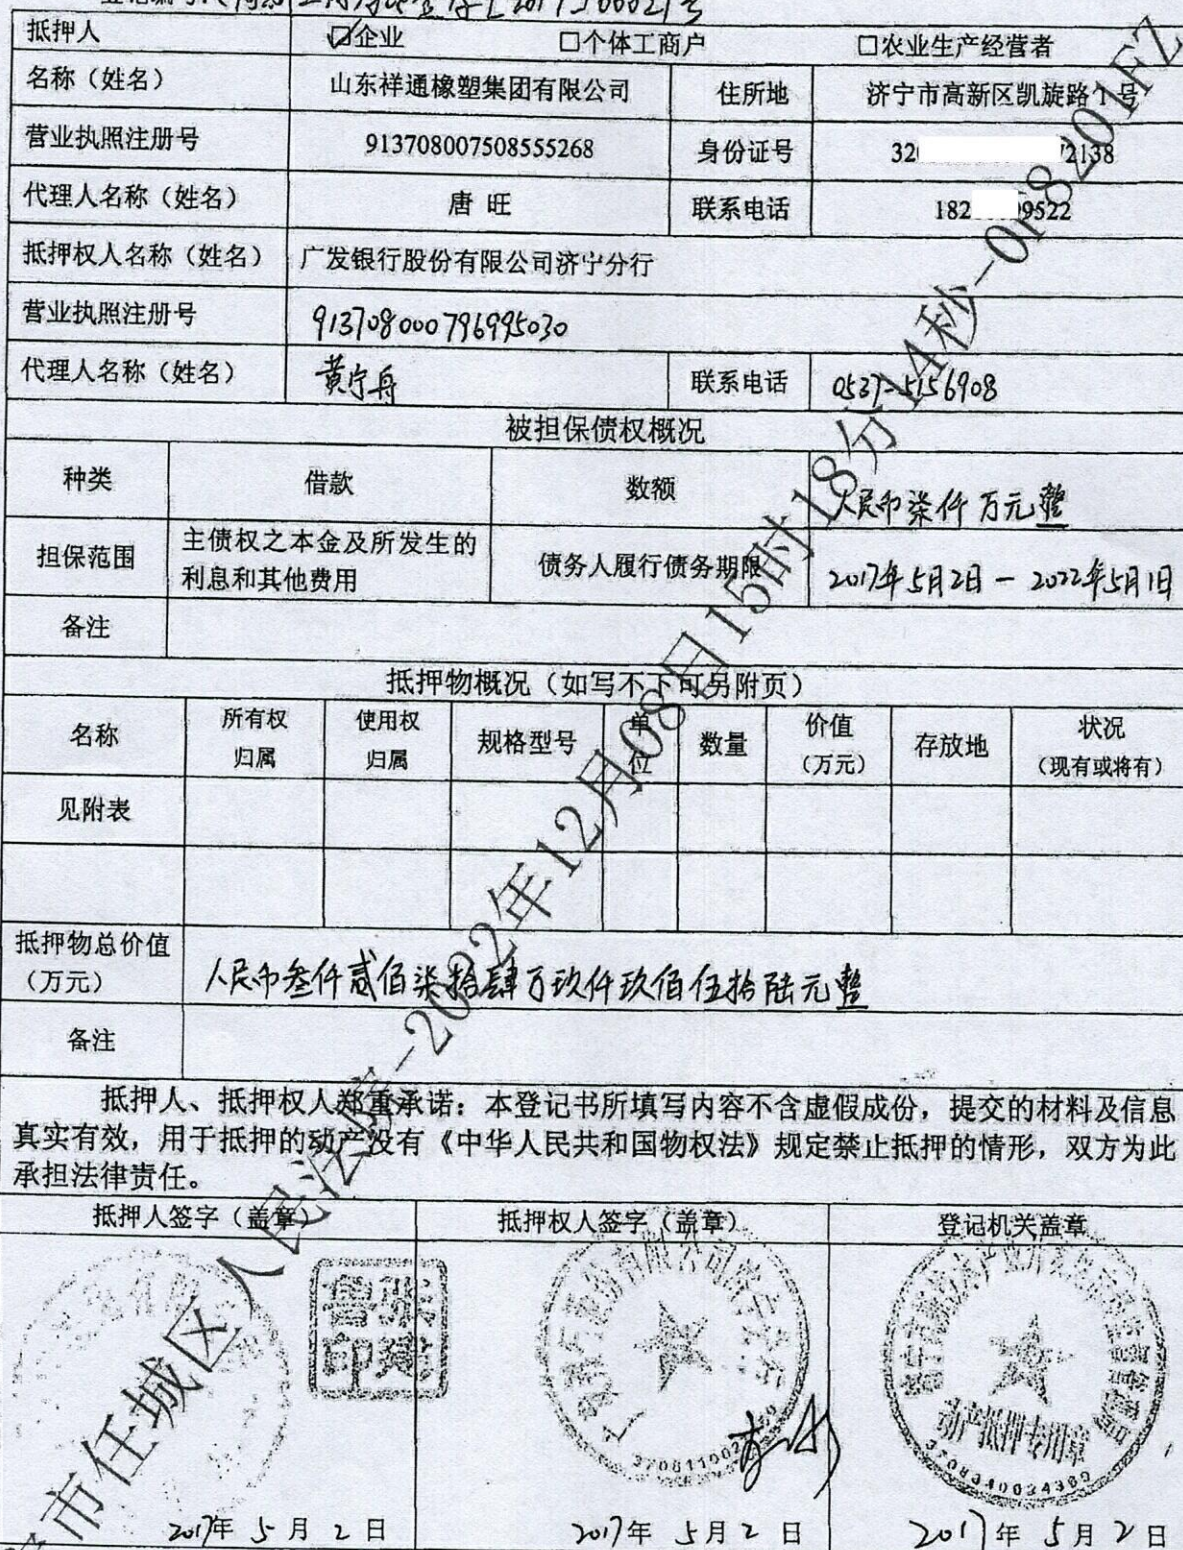 抵押人 ☑企业 □个体工商户 □农业生产经营者
名称（姓名） 山东祥通橡塑集团有限公司 住所地 济宁市高新区凯旋路1号
营业执照注册号 913708007508555268 身份证号 320 2138
代理人名称（姓名） 唐旺 联系电话 182 9522
抵押权人名称（姓名） 广发银行股份有限公司济宁分行
营业执照注册号 913708000796995030
代理人名称（姓名） 黄宁舟 联系电话 0537-5156908
被担保债权概况
种类 借款 数额 人民币柒仟万元整
担保范围 主债权之本金及所发生的利息和其他费用 债务人履行债务期限 2017年5月2日-2022年5月1日
备注
抵押物概况（如写不下可另附页）
名称 所有权归属 使用权归属 规格型号 单位 数量 价值（万元） 存放地 状况（现有或将有）
见附表
抵押物总价值（万元） 人民币叁仟贰佰柒拾肆万玖仟玖佰伍拾陆元整
备注
抵押人、抵押权人郑重承诺：本登记书所填写内容不含虚假成份，提交的材料及信息
真实有效，用于抵押的动产没有《中华人民共和国物权法》规定禁止抵押的情形，双方为此
承担法律责任。
抵押人签字（盖章） 抵押权人签字（盖章） 登记机关盖章
动产抵押专用章
3708340034389
2017年5月2日 2017年5月2日 2017年5月2日
市任城区人民法院-2022年12月08日15时18分14秒-0F8201FZ